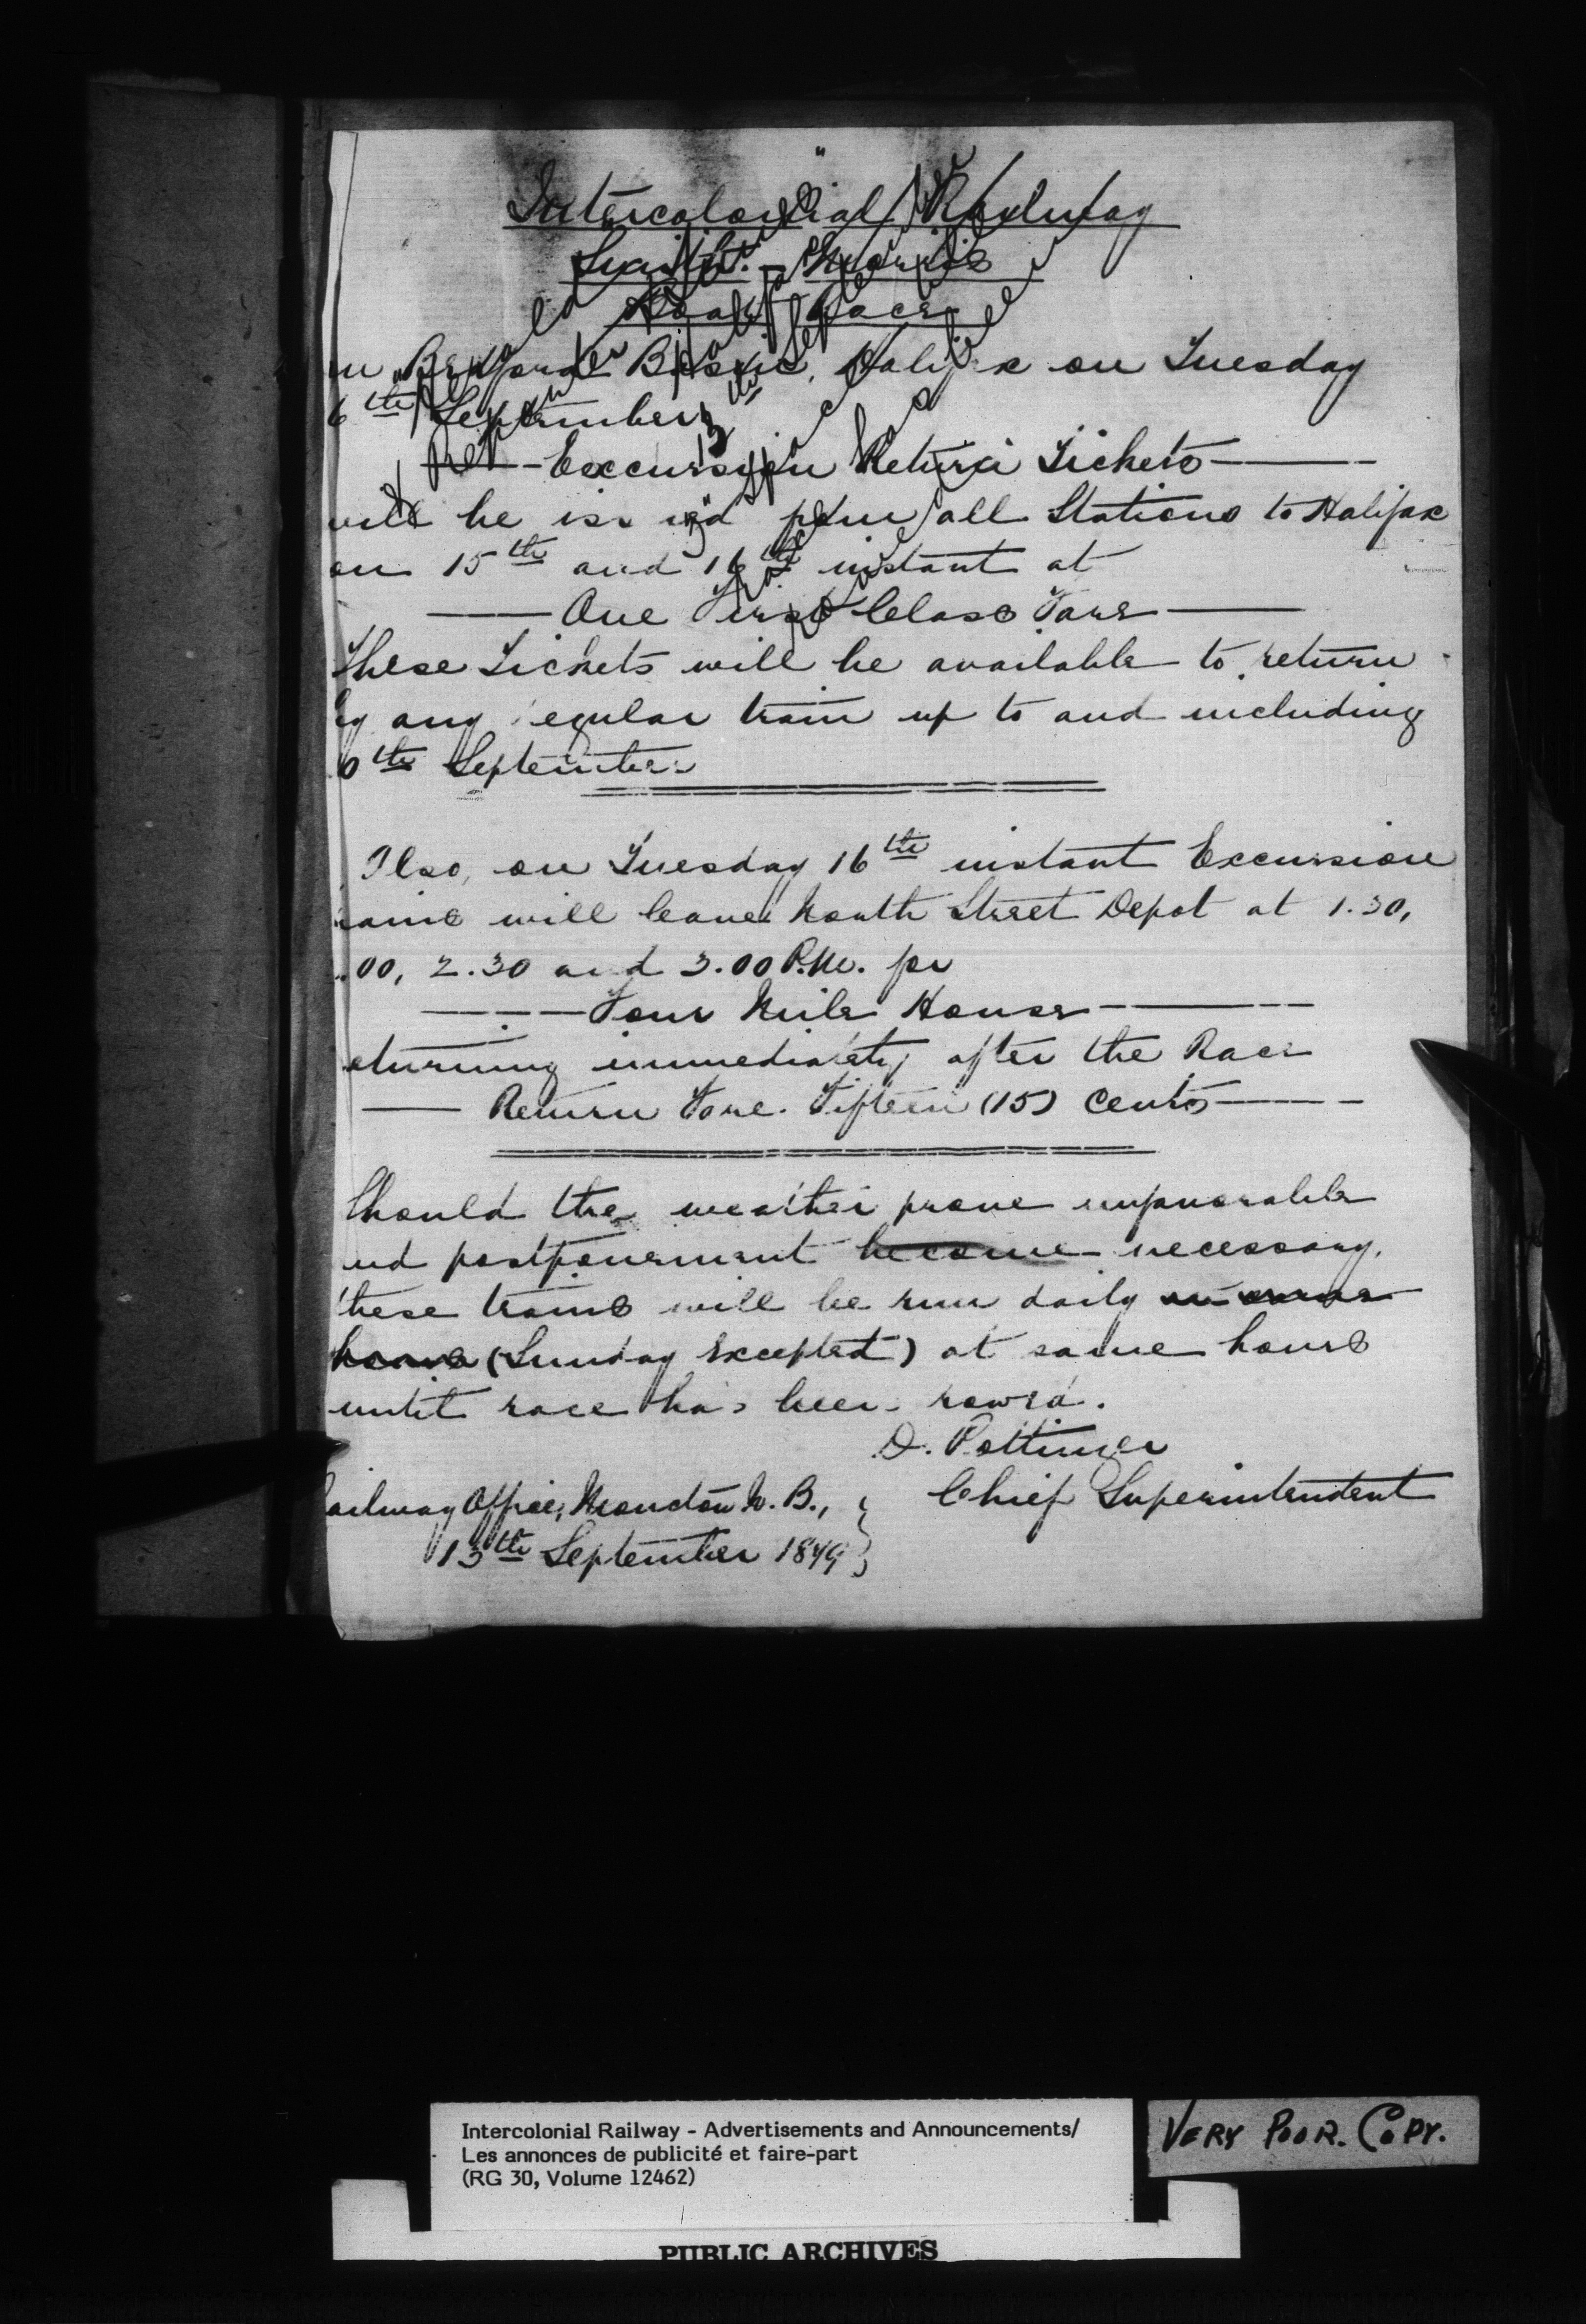 Intercolonial Railway
Smith - Morris
Boat Race
in Bedford Basin, Halifax on Tuesday
6th September
Excursion Return Tickets
will be issued from all Stations to Halifax
on 15th and 16th instant at
One First Class Fare
These Tickets will be available to return
by any regular train up to and including
0th September
Also, on Tuesday 16th instant Excursion
will leave North Street Depot at 1.30,
.00, 2.30 and 3.00 P.M. for
Four Mile House
eturning immediately after the Race
Return Fare. Fifteen (15) Cents
Should the weather prove unfavorable
and postponement become necessary,
these trains will be run daily
hours (Sunday excepted) at same hours
until race has been rowed.
D. Pottinger
Railway Office, Moncton N.B., Chief Superintendent
13th September 1879
Intercolonial Railway - Advertisements and Announcements/
Les annonces de publicité et faire-part
(RG 30, Volume 12462)
VERY POOR. COPY.
PUBLIC ARCHIVES